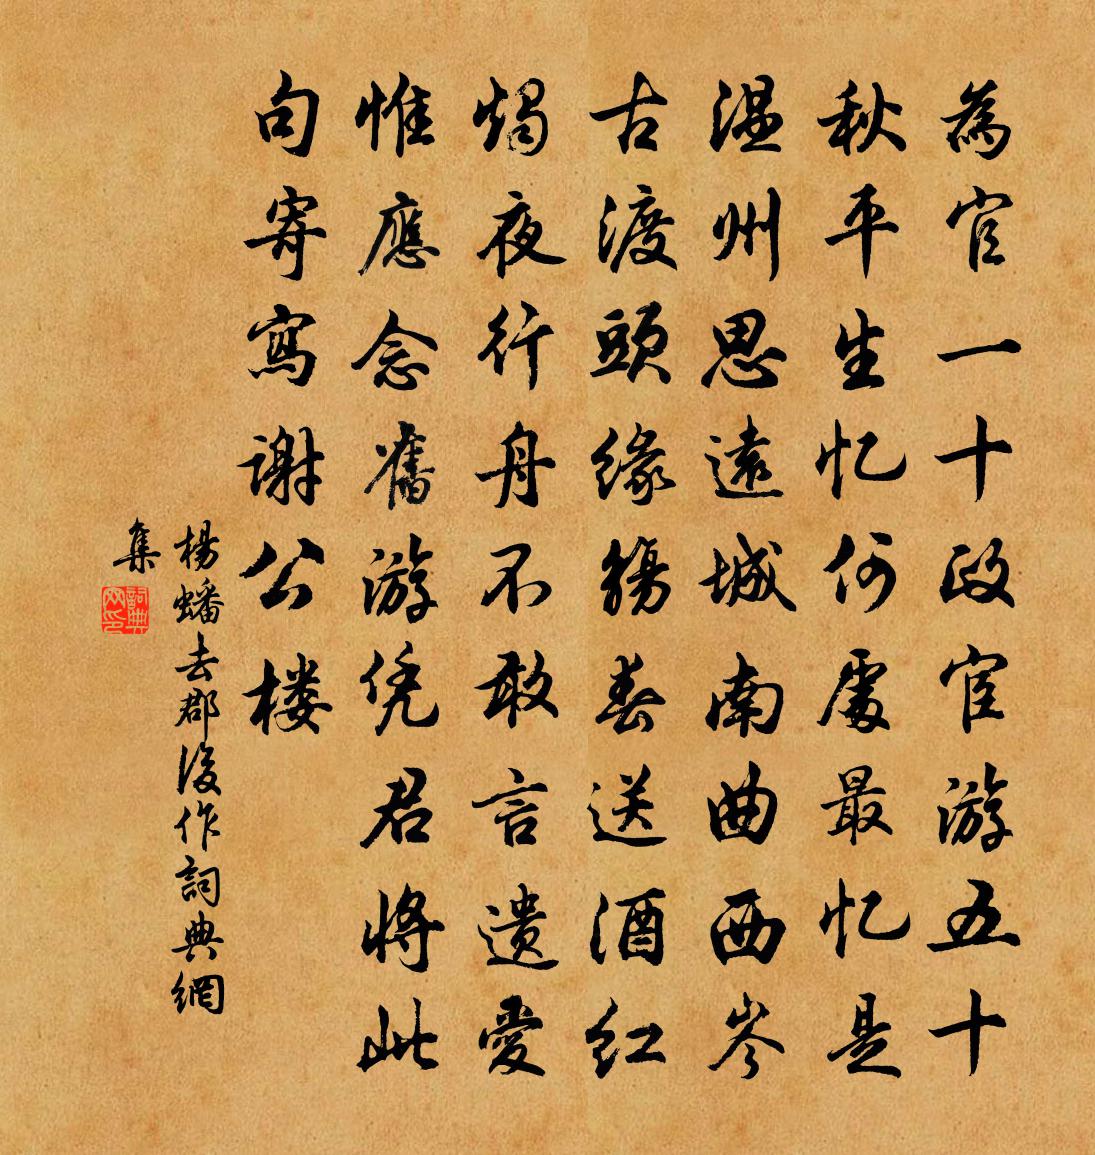 為官一十政宦游五十
秋平生忆何處最忆是
温州思遠城南曲西岑
古渡頭緣觴春送酒红
燭夜行舟不敢言遗愛
惟應念舊游凭君將此
句寄寫謝公楼
楊蟠去郡後作詞典網
集
詞典
网印